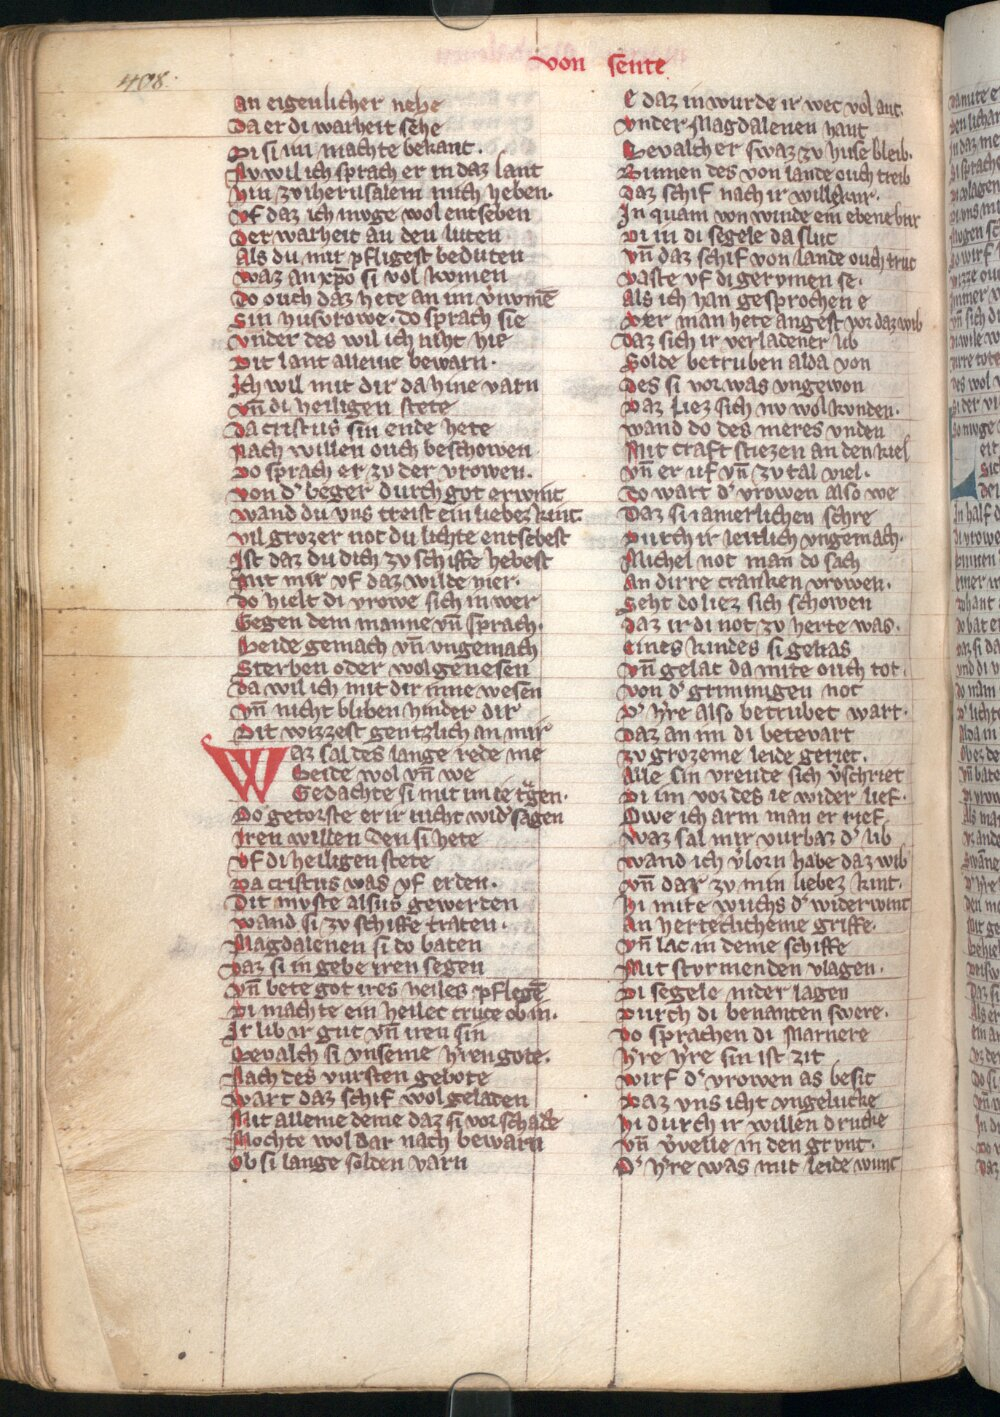 408.
von sente
an eigenlicher nehe
Da er di warheit sehe
Di si im machte bekant.
Nv wil ich sprach er in daz lant
hin zv iherusalem mich heben.
Vf daz ich moge wol entseben
Der warheit an den luten
Als du mir pfligest beduten
Waz an xpo si vol kvmen
Do ouch daz hete an im vnvmē
Sin husvrowe. do sprach sie
Vnder des wil ich niht hie
Dit lant alleine bewarn.
Ich wil mit dir da hine varn
Vn̄ di heiligen stete
Da cristus sin ende hete
Nach willen ouch beschowen
Do sprach er zv der vrowen.
Von d' beger durch got erwint
Wand du vns treist ein liebez kint.
Vil grozer not du lichte entsebest
Ist daz du dich zv schiffe hebest
Mit mir vf daz wilde mer.
Do hielt di vrowe sich in wer
Gegen dem manne vn̄ sprach.
Beide gemach vn̄ vngemach
Sterben oder wol genesen
Da wil ich mit dir inne wesen
Vn̄ nicht bliben hinder dir
Dit wizzest gentzlich an mir
Waz sal des lange rede me
Beide wol vn̄ we
Gedachte si mit im ie trgen.
Do getorste er ir nicht wid' sagen
Iren willen den si hete
Vf di heiligen stete
Da cristus was vf erden.
Dit mvste alsus gewerden
Wand si zv schiffe traten.
Magdalenen si do baten
Daz si in gebe iren segen
Vn̄ bete got ires heiles pflegē
Di machte ein heilec cruce ob in.
Ir lib ir gut vn̄ iren sin
Bevalch si vnseme h'ren gote.
Nach des vursten gebote
Wart daz schif wol geladen
Mit alleme deme daz si vor schade
Mochte wol dar nach bewarn
Ob si lange solden varn
E daz in wurde ir wec vol ant.
Vnder Magdalenen hant
Bevalch er swaz zv huse bleib.
Binnen des von lande ouch treib
Daz schif nach ir willekur.
In quam von winde ein ebene bur
Di in di segele da sluc
Vn̄ daz schif von lande ouch truc
Vaste vf di gerymen se.
Als ich han gesprochen e
Der man hete angest vor daz wib
Daz sich ir verladener lib
Solde betruben alda von
Des si vor was vngewon
Daz liez sich nv wol kvnden.
Wand do des meres vnden
Mit craft stiezen an den kiel
Vn̄ er uf vn̄ zv tal viel.
Do wart d' vrowen also we
Daz si iamerlichen schre
Durch ir leitlich vngemach.
Michel not man do sach
An dirre cranken vrowen.
Seht do liez sich schowen
Daz ir di not zv herte was.
Eines kindes si genas
Vn̄ gelac da mite ouch tot.
Von d' grimmigen not
D' h're also betrubet wart.
Daz an im di betevart
Zv grozeme leide geriet.
Alle sin vreude sich v'schriet
Di im vor des ie wider lief.
Owe ich arm man er rief
Waz sal mir vurbaz d' lib
Wand ich v'lorn habe daz wib
Vn̄ dar zv min liebez kint.
Hi mite wuchs d' widerwint
An herteclicheme griffe.
Vn̄ lac in deme schiffe
Mit stvrmenden vlagen.
Di segele nider lagen
Durch di benanten swere.
Do sprachen di Marnere
H're h're sin ist zit
Wirf d' vrowen as besit
Daz vns icht vngelucke
Hi durch ir willen drucke
Vn̄ v'velle in den grvnt.
D' h're was mit leide wunt